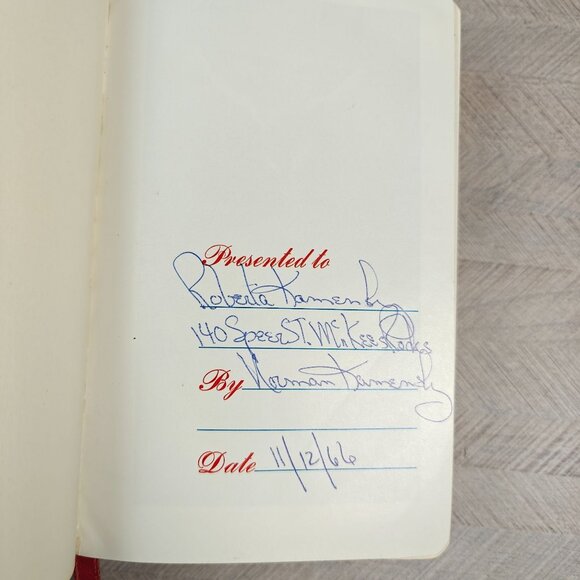 Presented to
Roberta Kamensky
140 Speer ST. McKees Rocks
By Norman Kamensky
Date 11/12/66